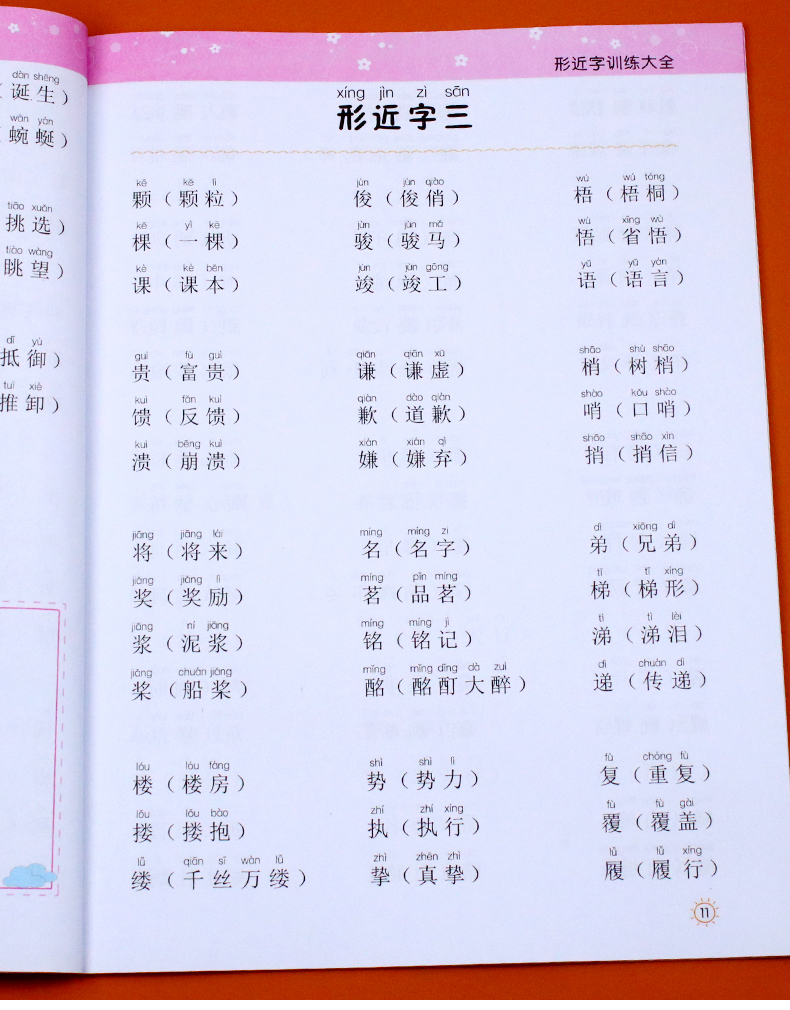 dàn shēng
诞生）
wān yán
蜿蜒）
tiāo xuǎn
挑选）
tiào wàng
眺望）
dǐ yù
抵御）
tuī xiè
推卸）
形近字训练大全
xíng jìn zì sān
形近字三
kē kē lì
颗（颗粒）
kē yì kē
棵（一棵）
kè kè běn
课（课本）
jùn jùn qiào
俊（俊俏）
jùn jùn mǎ
骏（骏马）
jùn jùn gōng
竣（竣工）
wú wú tóng
梧（梧桐）
wù xǐng wù
悟（省悟）
yǔ yǔ yán
语（语言）
guì fù guì
贵（富贵）
kuì fǎn kuì
馈（反馈）
kuì bēng kuì
溃（崩溃）
qiān qiān xū
谦（谦虚）
qiàn dào qiàn
歉（道歉）
xián xián qì
嫌（嫌弃）
shāo shù shāo
梢（树梢）
shào kǒu shào
哨（口哨）
shāo shāo xìn
捎（捎信）
jiāng jiāng lái
将（将来）
jiǎng jiǎng lì
奖（奖励）
jiāng ní jiāng
浆（泥浆）
jiǎng chuán jiǎng
桨（船桨）
míng míng zi
名（名字）
míng pǐn míng
茗（品茗）
míng míng jì
铭（铭记）
mǐng mǐng dǐng dà zuì
酩（酩酊大醉）
dì xiōng dì
弟（兄弟）
tī tī xíng
梯（梯形）
tì tì lèi
涕（涕泪）
dì chuán dì
递（传递）
lóu lóu fáng
楼（楼房）
lǒu lǒu bào
搂（搂抱）
lǚ qiān sī wàn lǚ
缕（千丝万缕）
shì shì lì
势（势力）
zhí zhí xíng
执（执行）
zhì zhēn zhì
挚（真挚）
fù chóng fù
复（重复）
fù fù gài
覆（覆盖）
lǚ lǚ xíng
履（履行）
11